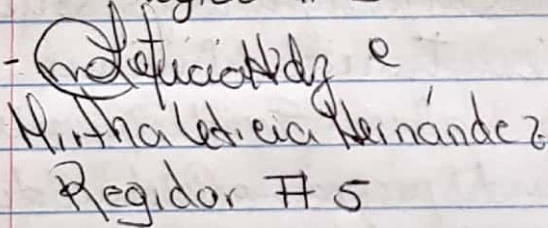 - Leticia Hdz e
Mirtha Leticia Hernández
Regidor # 5